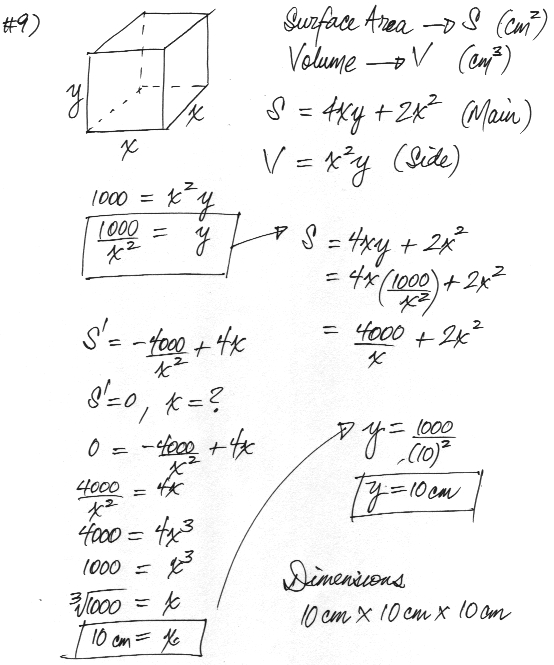 #9)
Surface Area → S (cm²)
Volume → V (cm³)
y
x
x
S = 4xy + 2x² (Main)
V = x²y (Side)
1000 = x²y
1000/x² = y
S = 4xy + 2x²
= 4x(1000/x²) + 2x²
= 4000/x + 2x²
S' = -4000/x² + 4x
S' = 0, x = ?
0 = -4000/x² + 4x
4000/x² = 4x
4000 = 4x³
1000 = x³
³√1000 = x
10 cm = x
y = 1000/(10)²
y = 10 cm
Dimensions
10 cm × 10 cm × 10 cm